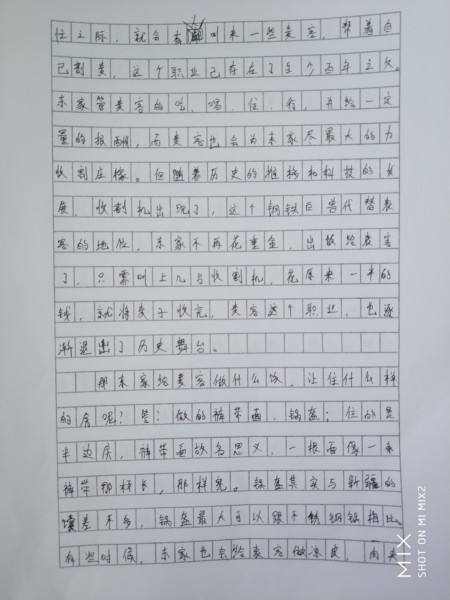 忙之际，就会有叫来一些麦客，帮着自
己割麦，这个职业已存在了至少百年之久。
东家管麦客的吃、喝、住、行，并给一定
量的报酬，而麦客也会为东家尽最大的力
收割庄稼。但随着历史的推移和科技的发
展，收割机出现了，这个钢铁巨兽代替麦
客的地位，东家不再花重金，出饭给麦客
了，只需叫上几台收割机，花原来一半的
钱，就将麦子收完，麦客这个职业，也逐
渐退出了历史舞台。
那东家给麦客做什么饭，让住什么样
的舍呢？答：做的裤带面、锅盔；住的是
半边房，裤带面故名思义，一根面像一条
裤带那样长，那样宽。锅盔其实与新疆的
馕差不多，锅盔最大可以跟不锈钢锅相比。
有些时候，东家也会给麦客做凉皮、肉夹
MIX
SHOT ON MI MIX2